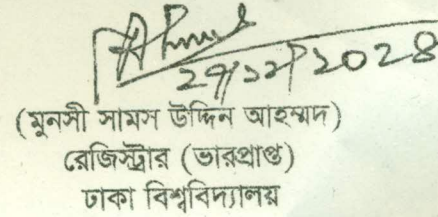 ২৭/১১/২০২৪
(মুনসী সামস উদ্দিন আহম্মদ)
রেজিস্ট্রার (ভারপ্রাপ্ত)
ঢাকা বিশ্ববিদ্যালয়